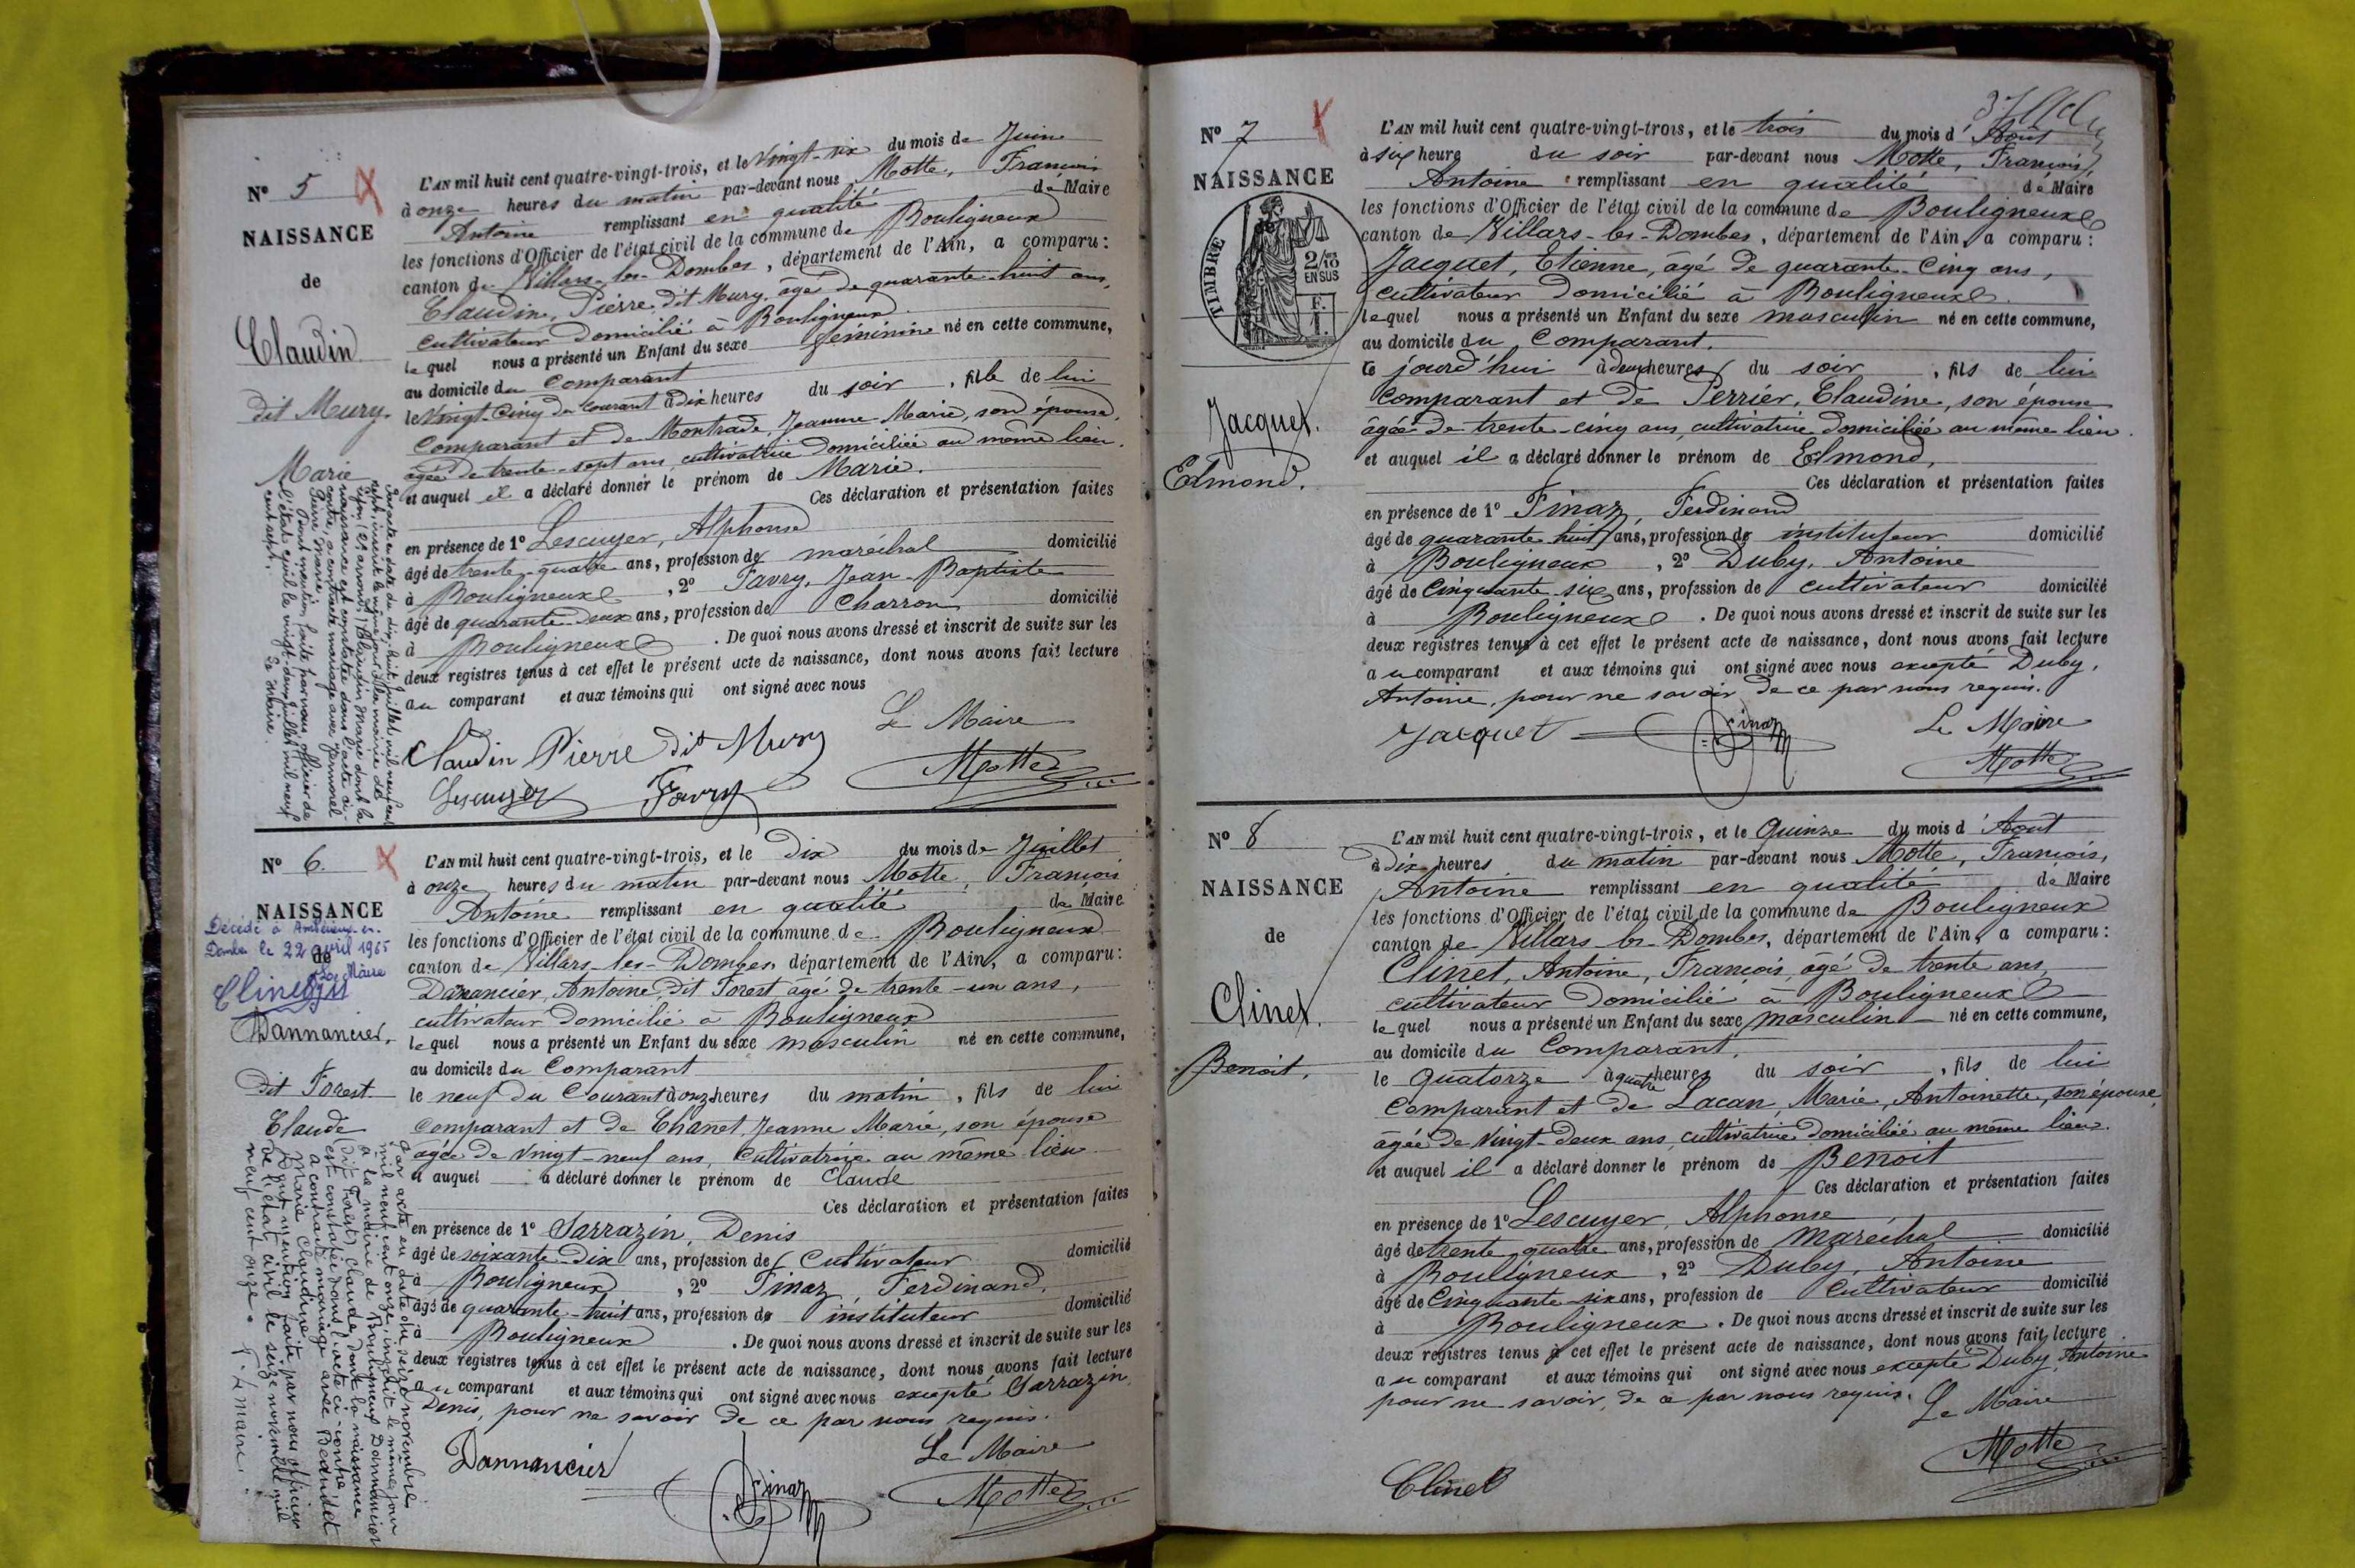 Nº 5
NAISSANCE
de
Claudin
dit Mury.
Marie
L'AN mil huit cent quatre-vingt-trois, et le Vingt-six du mois de Juin
à onze heures du matin par-devant nous Motte, François
Antoine remplissant en qualité de Maire
les fonctions d'Officier de l'état civil de la commune de Bouligneux
canton de Villars-les-Dombes, département de l'Ain, a comparu:
Claudin, Pierre dit Mury, âgé de quarante-huit ans,
cultivateur domicilié à Bouligneux
lequel nous a présenté un Enfant du sexe féminine né en cette commune,
au domicile du Comparant
le Vingt-Cinq du courant à dix heures du soir, fille de lui
Comparant et de Montrade, Jeanne-Marie, son épouse,
âgée de trente-sept ans, cultivatrice domiciliée au même lieu.
et auquel il a déclaré donner le prénom de Marie.
Ces déclaration et présentation faites
en présence de 1º Lescuyer, Alphonse
âgé de trente-quatre ans, profession de maréchal domicilié
à Bouligneux, 2º Favry, Jean-Baptiste
âgé de quarante-deux ans, profession de Charron domicilié
à Bouligneux. De quoi nous avons dressé et inscrit de suite sur les
deux registres tenus à cet effet le présent acte de naissance, dont nous avons fait lecture
au comparant et aux témoins qui ont signé avec nous
Le Maire
Claudin Pierre dit Mury
Lescuyer Favry Motte
Par acte en date du dix-huit juillet mil neuf cent
sept, inscrit le même jour à la mairie de
Lyon Claudin Marie dont la
naissance est constatée dans l'acte ci-
contre, a contracté mariage avec
Pierre Marie
Dont mention faite par nous, officier de
l'état civil le vingt-deux juillet mil neuf
cent sept. Le Maire.
Nº 6.
NAISSANCE
de
Décédé à Ambérieux-en-
Dombes le 22 avril 1965
Le Maire
Dannancier,
dit Forest.
Claude
L'AN mil huit cent quatre-vingt-trois, et le Dix du mois de Juillet
à onze heures du matin par-devant nous Motte, François
Antoine remplissant en qualité de Maire
les fonctions d'Officier de l'état civil de la commune de Bouligneux
canton de Villars-les-Dombes, département de l'Ain, a comparu:
Dannancier, Antoine, dit Forest âgé de trente-un ans,
cultivateur domicilié à Bouligneux
lequel nous a présenté un Enfant du sexe masculin né en cette commune,
au domicile du Comparant
le neuf du Courant à onze heures du matin, fils de lui
Comparant et de Chanet, Jeanne Marie, son épouse
âgée de vingt-neuf ans, Cultivatrice au même lieu
et auquel a déclaré donner le prénom de Claude
Ces déclaration et présentation faites
en présence de 1º Sarrazin, Denis
âgé de soixante-Dix ans, profession de Cultivateur domicilié
à Bouligneux, 2º Finaz, Ferdinand,
âgé de quarante-huit ans, profession de instituteur domicilié
à Bouligneux. De quoi nous avons dressé et inscrit de suite sur les
deux registres tenus à cet effet le présent acte de naissance, dont nous avons fait lecture
au comparant et aux témoins qui ont signé avec nous excepté Sarrazin,
Denis, pour ne savoir de ce par nous requis.
Le Maire
Dannancier Finaz Motte
Par acte en date du seize novembre
mil neuf cent onze, inscrit le même jour
à la mairie de Bouligneux Dannancier
(dit Forest) Claude dont la naissance
est constatée dans l'acte ci-contre
a contracté mariage avec
Marie Claudine.
Dont mention faite par nous officier
de l'état civil le seize novembre mil
neuf cent onze. Le maire.
Nº 7
NAISSANCE
TIMBRE
2/10
EN SUS
Jacquet.
Edmond.
L'AN mil huit cent quatre-vingt-trois, et le trois du mois d'Août
à six heure du soir par-devant nous Motte, François,
Antoine remplissant en qualité de Maire
les fonctions d'Officier de l'état civil de la commune de Bouligneux
canton de Villars-les-Dombes, département de l'Ain, a comparu:
Jacquet, Etienne, âgé de quarante-Cinq ans,
cultivateur domicilié à Bouligneux.
lequel nous a présenté un Enfant du sexe masculin né en cette commune,
au domicile du Comparant.
ce jourd'hui à deux heures du soir, fils de lui
Comparant et de Perrier, Claudine, son épouse
âgée de trente-cinq ans, cultivatrice domiciliée au même lieu.
et auquel il a déclaré donner le prénom de Edmond,
Ces déclaration et présentation faites
en présence de 1º Finaz, Ferdinand
âgé de quarante huit ans, profession de instituteur domicilié
à Bouligneux, 2º Duby, Antoine
âgé de Cinquante-six ans, profession de cultivateur domicilié
à Bouligneux. De quoi nous avons dressé et inscrit de suite sur les
deux registres tenus à cet effet le présent acte de naissance, dont nous avons fait lecture
au comparant et aux témoins qui ont signé avec nous excepté Duby,
Antoine, pour ne savoir, de ce par nous requis.
Le Maire
Jacquet Finaz Motte
Nº 8
NAISSANCE
de
Clinet.
Benoit.
L'AN mil huit cent quatre-vingt-trois, et le Quinze du mois d'Aout
à Dix heures du matin par-devant nous Motte, François,
Antoine remplissant en qualité de Maire
les fonctions d'Officier de l'état civil de la commune de Bouligneux
canton de Villars-les-Dombes, département de l'Ain, a comparu:
Clinet, Antoine, François, âgé de trente ans,
cultivateur domicilié à Bouligneux
lequel nous a présenté un Enfant du sexe masculin né en cette commune,
au domicile du Comparant.
le Quatorze à quatre heures du soir, fils de lui
Comparant et de Lacan, Marie, Antoinette, son épouse,
âgée de Vingt-deux ans, cultivatrice domiciliée au même lieu.
et auquel il a déclaré donner le prénom de Benoit
Ces déclaration et présentation faites
en présence de 1º Lescuyer, Alphonse
âgé de trente quatre ans, profession de Maréchal domicilié
à Bouligneux, 2º Duby, Antoine
âgé de Cinquante-six ans, profession de Cultivateur domicilié
à Bouligneux. De quoi nous avons dressé et inscrit de suite sur les
deux registres tenus à cet effet le présent acte de naissance, dont nous avons fait lecture
au comparant et aux témoins qui ont signé avec nous excepté Duby, Antoine
pour ne savoir, de ce par nous requis. Le Maire
Clinet Motte